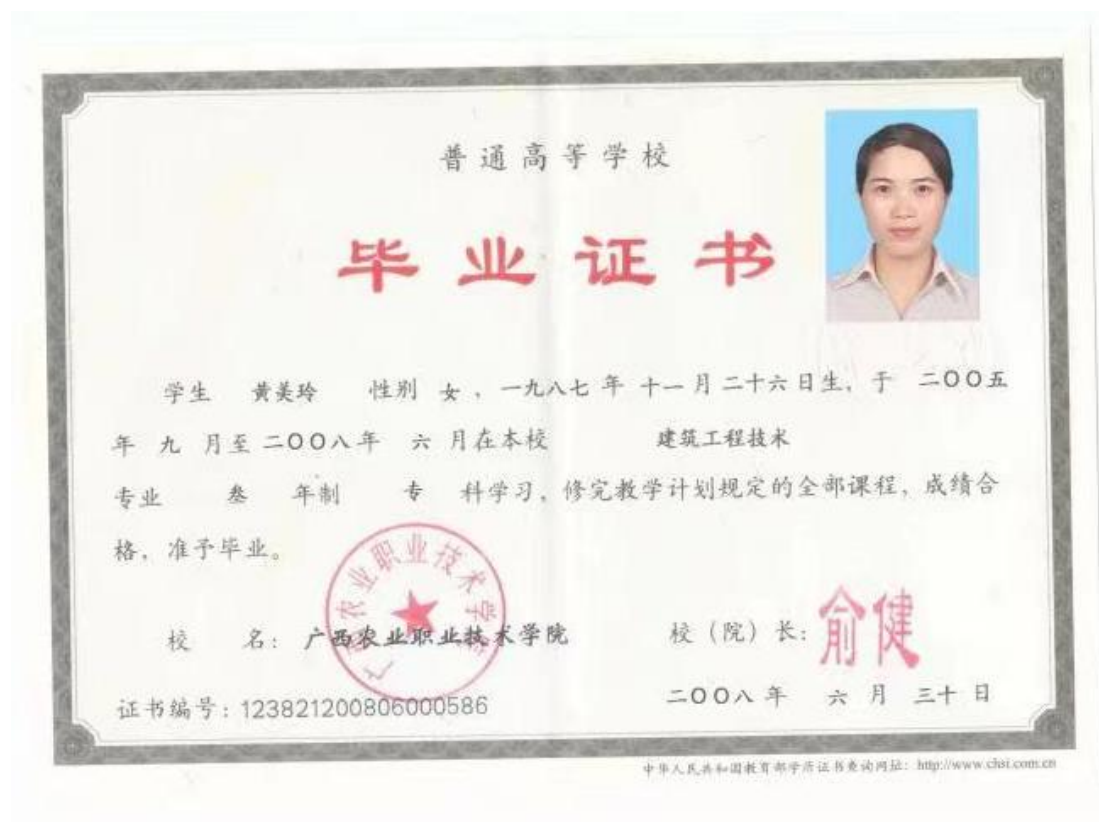 普通高等学校
毕业证书
学生 黄美玲 性别 女，一九八七 年 十一 月 二十六 日生，于 二〇〇五
年 九 月至 二〇〇八 年 六 月在本校 建筑工程技术
专业 叁 年制 专 科学习，修完教学计划规定的全部课程，成绩合
格，准予毕业。
广西农业职业技术学院
校 名：广西农业职业技术学院 校（院）长：俞健
证书编号：123821200806000586 二〇〇八 年 六 月 三十 日
中华人民共和国教育部学历证书查询网址：http://www.chsi.com.cn